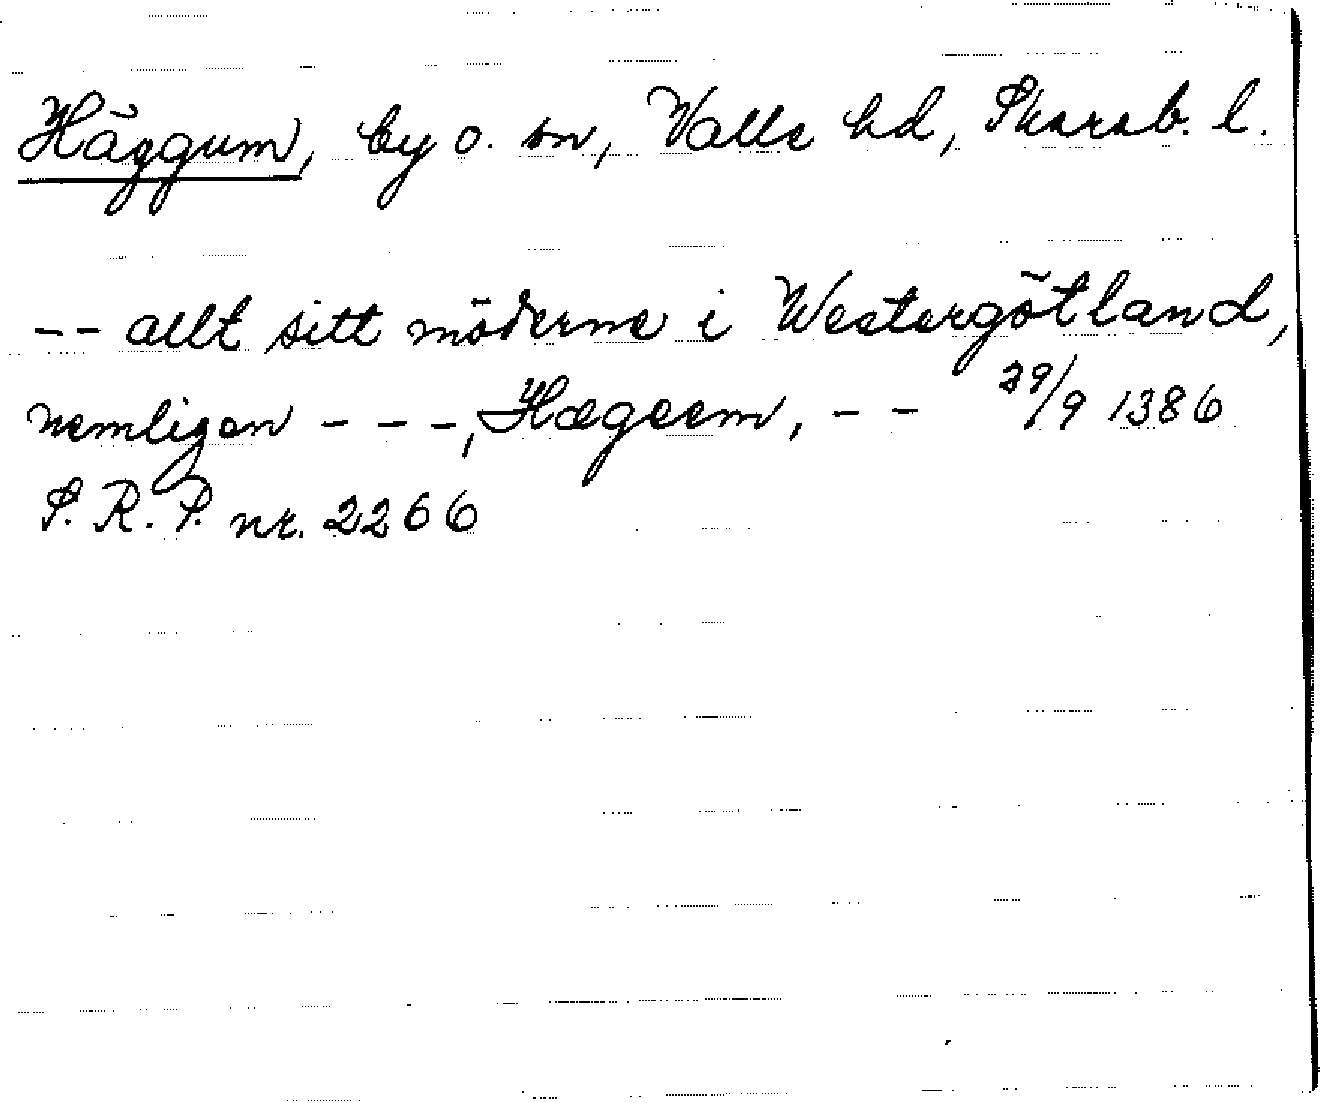 Häggum, by o. sn, Valle hd, Skarab. l.
-- allt sitt möderne i Westergötland,
nemligen - - -, Hægeem, - - 29/9 1386
S. R. P. nr. 2266